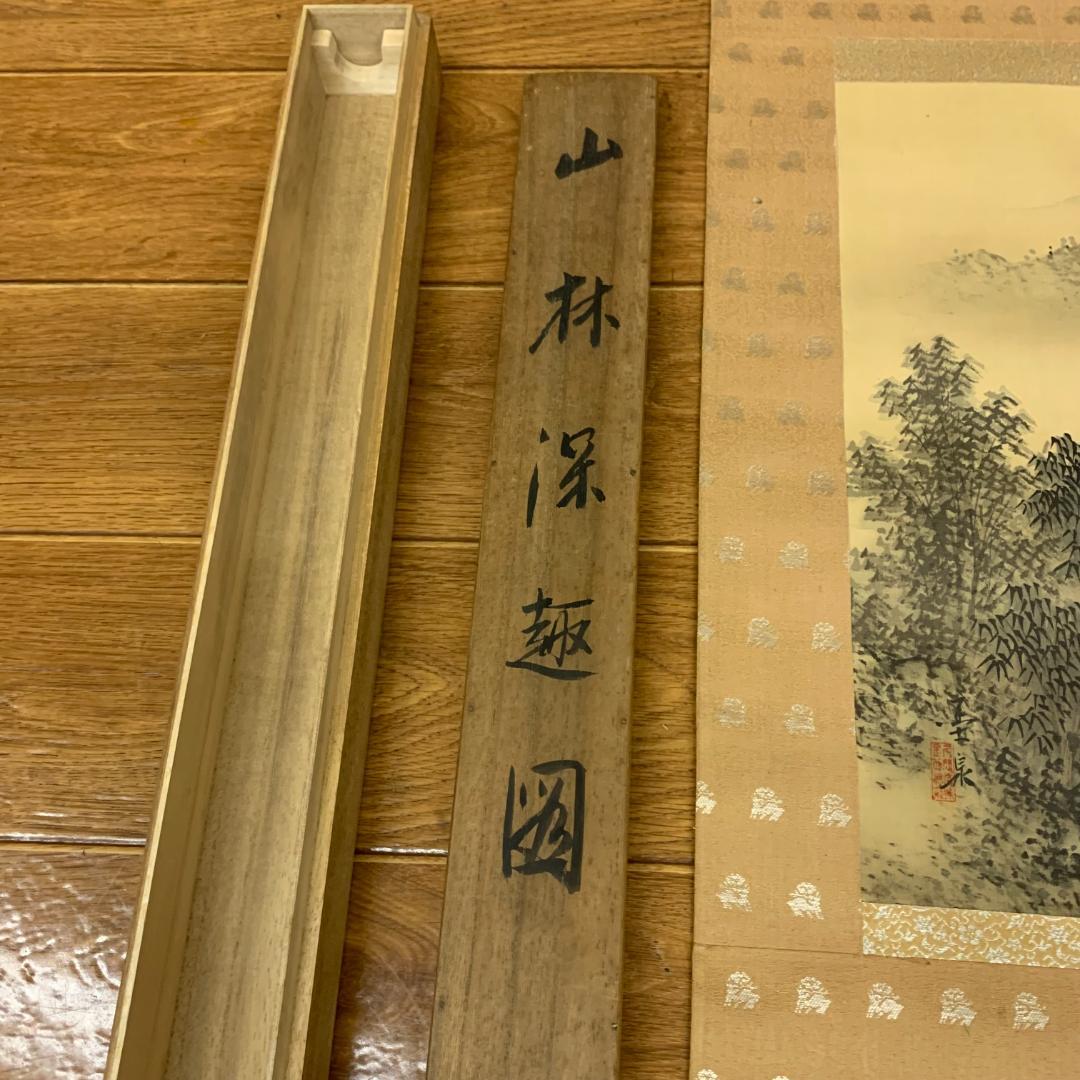 山林深趣圖